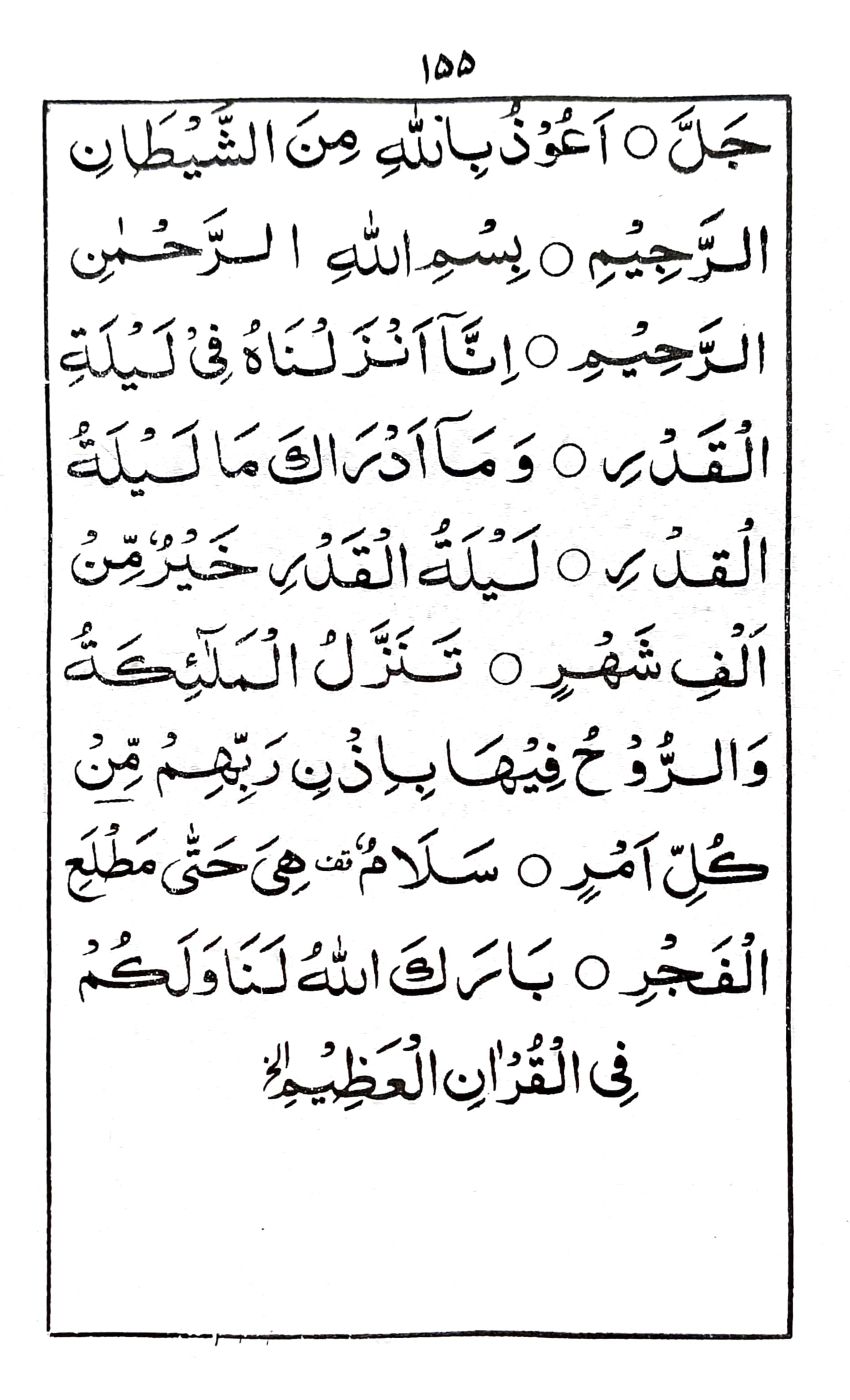 ۱۵۵
جَلَّ ○ اَعُوْذُ بِاللّٰهِ مِنَ الشَّيْطَانِ
الرَّجِيْمِ ○ بِسْمِ اللّٰهِ الرَّحْمٰنِ
الرَّحِيْمِ ○ اِنَّآ اَنْزَلْنَاهُ فِيْ لَيْلَةِ
الْقَدْرِ ○ وَمَآ اَدْرَاكَ مَا لَيْلَةُ
الْقدْرِ ○ لَيْلَةُ الْقَدْرِ خَيْرٌ مِّنْ
اَلْفِ شَهْرٍ ○ تَنَزَّلُ الْمَلٰٓئِكَةُ
وَالرُّوْحُ فِيْهَا بِاِذْنِ رَبِّهِمْ مِّنْ
كُلِّ اَمْرٍ ○ سَلَامٌ تف هِىَ حَتّٰى مَطْلَعِ
الْفَجْرِ ○ بَارَكَ اللّٰهُ لَنَا وَلَكُمْ
فِى الْقُرْاٰنِ الْعَظِيْمِ الخ